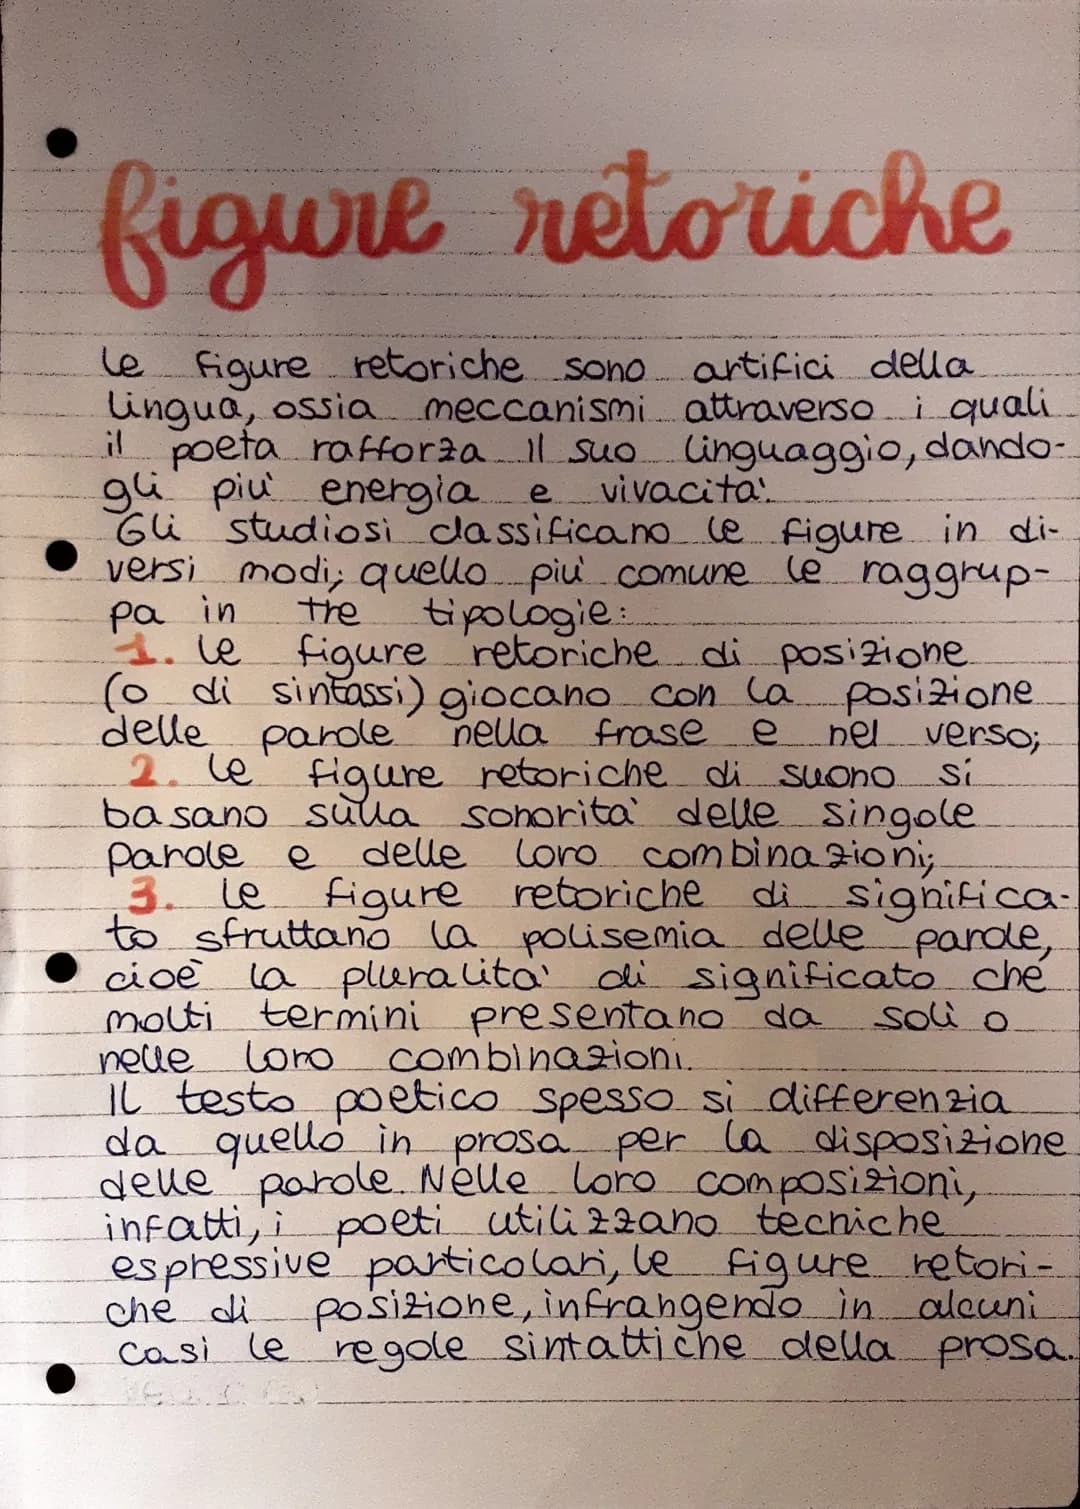 figure retoriche
le figure retoriche sono artifici della
lingua, ossia meccanismi attraverso i quali
il poeta rafforza il suo linguaggio, dando-
gli piu' energia e vivacita'.
Gli studiosi classificano le figure in di-
versi modi; quello piu' comune le raggrup-
pa in tre tipologie:
1. le figure retoriche di posizione
(o di sintassi) giocano con la posizione
delle parole nella frase e nel verso;
2. le figure retoriche di suono si
basano sulla sonorita' delle singole
parole e delle loro combinazioni;
3. le figure retoriche di significa-
to sfruttano la polisemia delle parole,
cioè la pluralita' di significato che
molti termini presentano da soli o
nelle loro combinazioni.
Il testo poetico spesso si differenzia
da quello in prosa per la disposizione
delle parole. Nelle loro composizioni,
infatti, i poeti utilizzano tecniche
espressive particolari, le figure retori-
che di posizione, infrangendo in alcuni
casi le regole sintattiche della prosa.